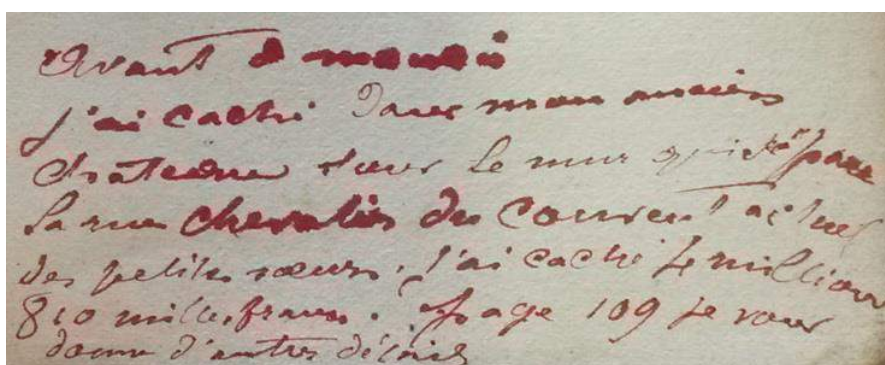 Avant de mourir
j'ai caché dans mon ancien
chateau dans le mur qui sépare
la rue chevalier du couvent actuel
des petites sœurs. j'ai caché 4 millions
810 mille francs. page 109 je vous
donne d'autres détails